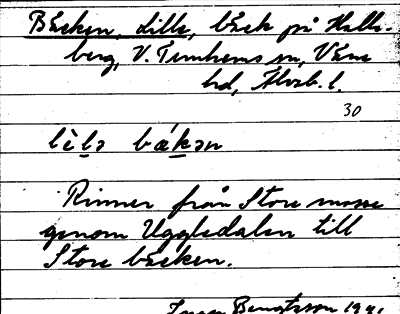 Bäcken, lilla, bäck på Halle-
berg, V. Tunhems sn, Väne
hd, Älvsb. l.
30
lìlə bǽkən
Rinner från Stora mosse
genom Uggledalen till
Store bäcken.
Bengtsson